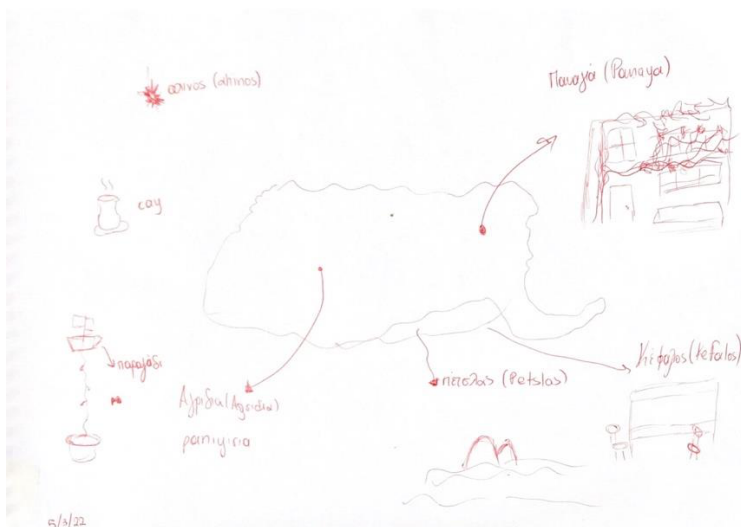 αχινος (ahinos)
Παναγιά (Panaya)
cay
παραγάδι
Αγρίδια (Agridia)
paniyiria
πέτσλας (Petslas)
Κέφαλος (Kefalos)
5/3/22